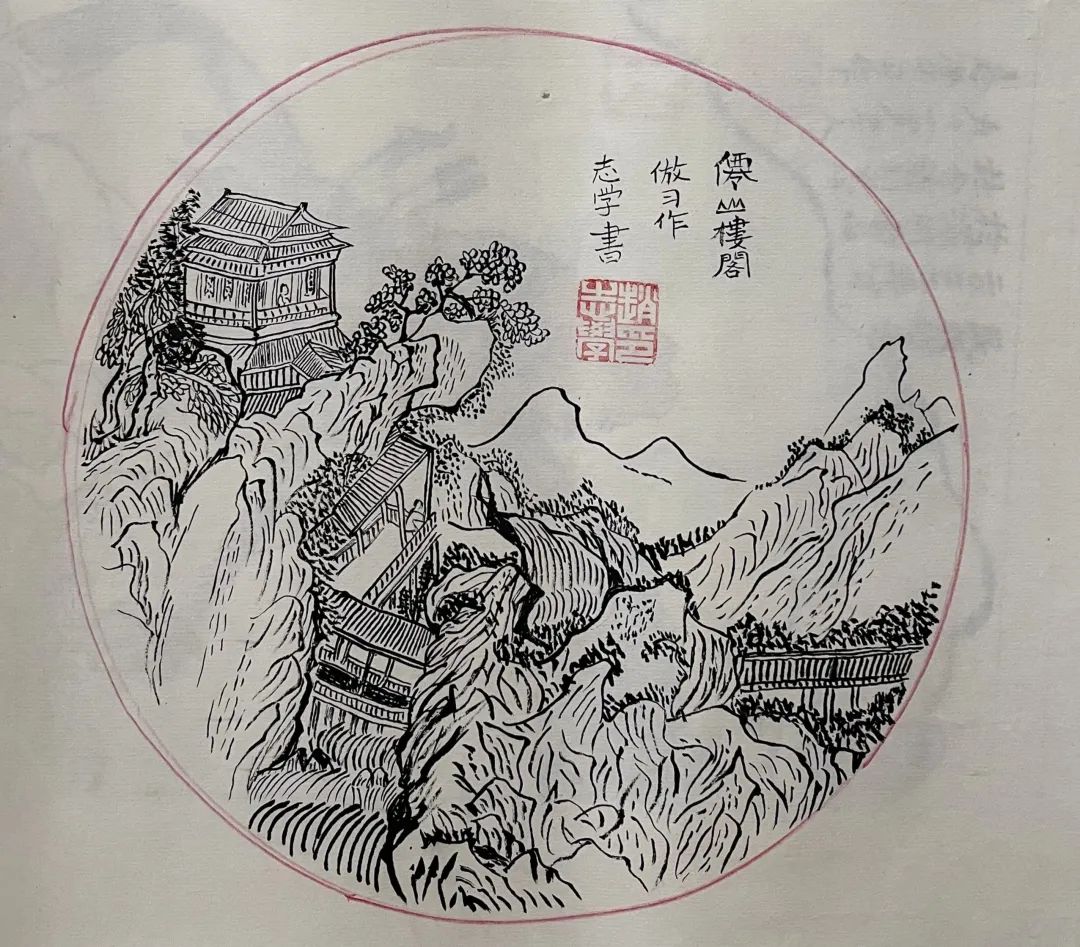 僊山樓閣
倣习作
志学書
趙印
志學